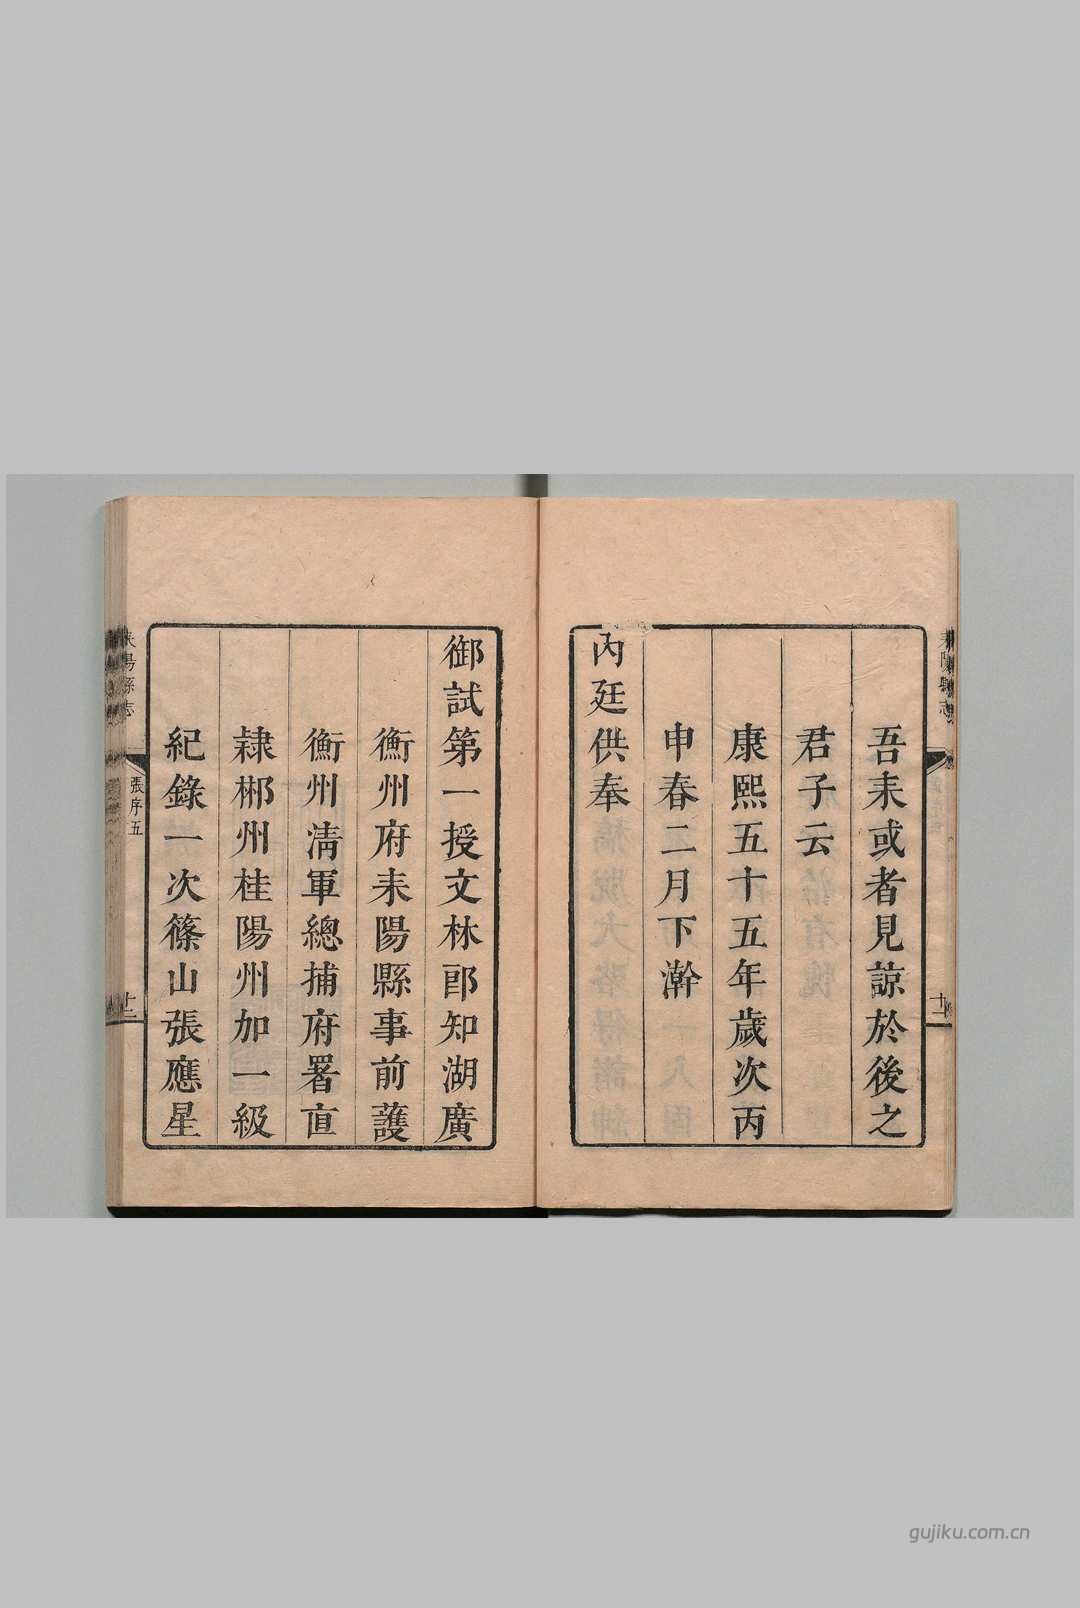 吾耒或者見諒於後之
君子云
康熙五十五年歲次丙
申春二月下澣
內廷供奉
御試第一授文林郎知湖廣
衡州府耒陽縣事前護
衡州清軍總捕府署直
隸郴州桂陽州加一級
紀錄一次篠山張應星
耒陽縣志
張序五
十二
gujiku.com.cn